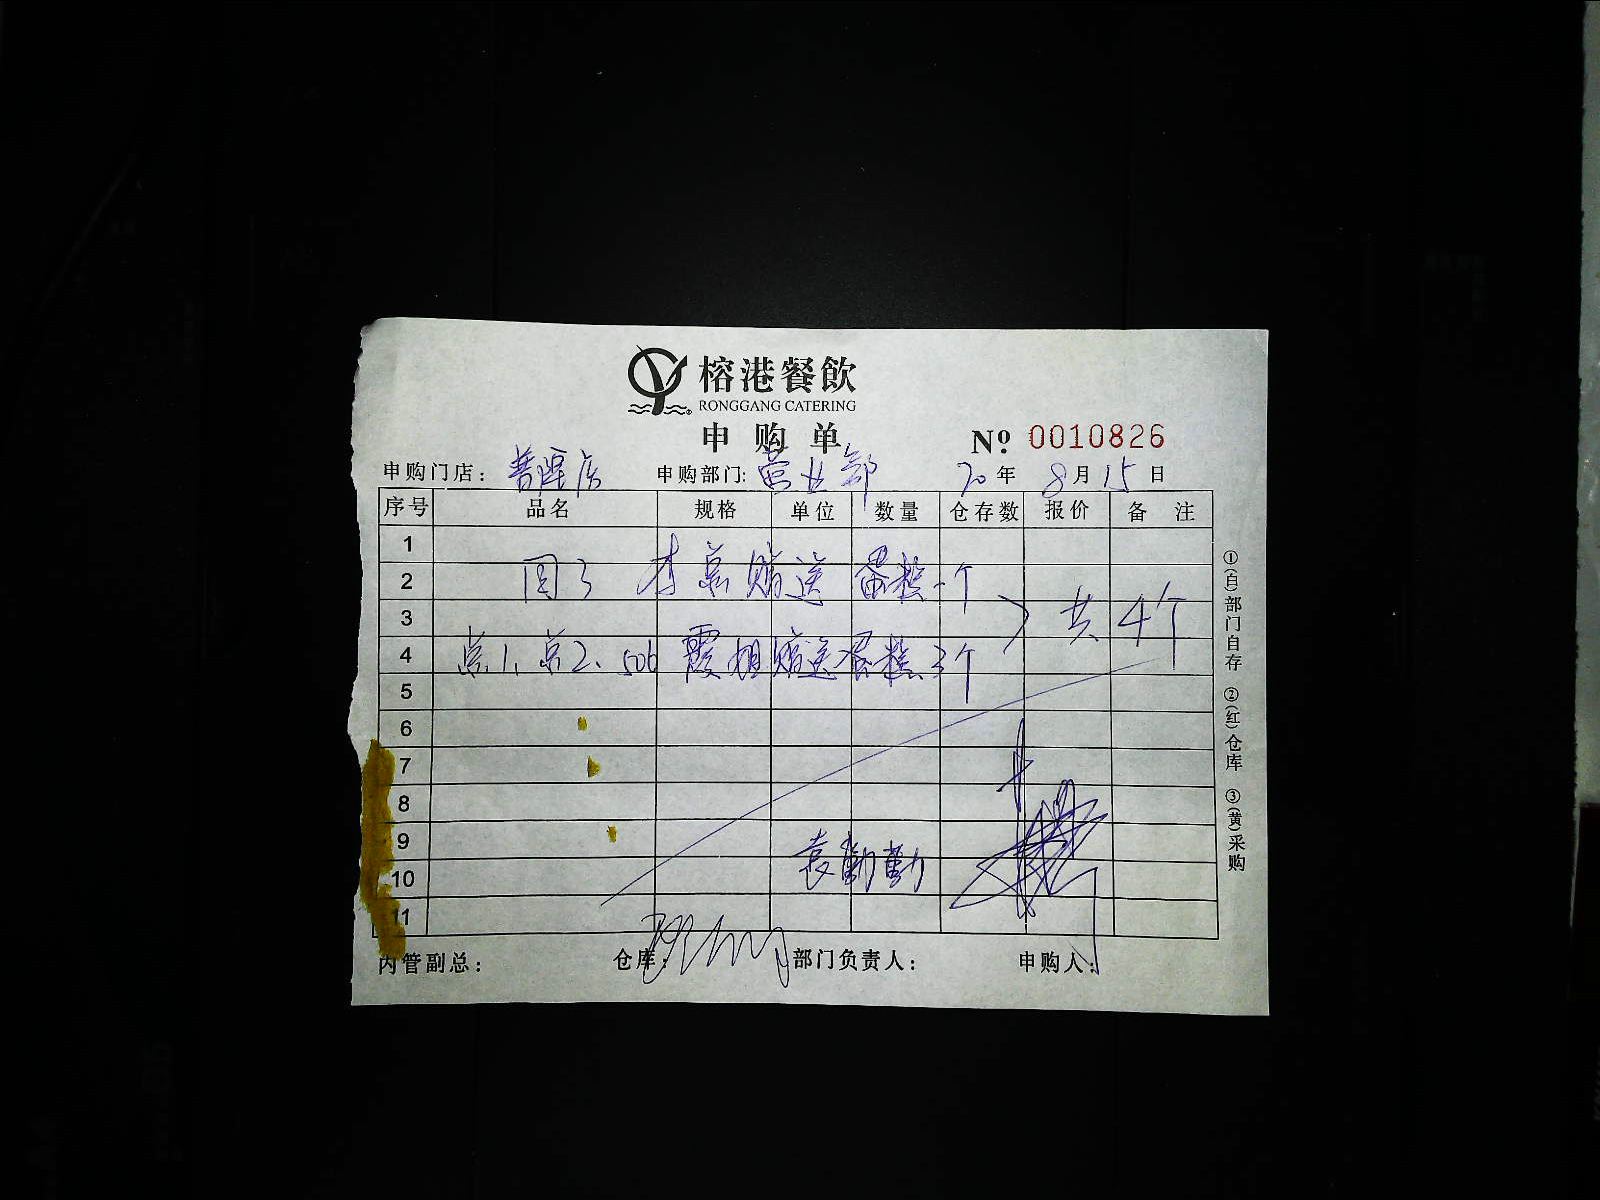 榕港餐飲
RONGGANG CATERING
申购单
№ 0010826
申购门店: 普陀店 申购部门: 营业部 20年 8月15日
序号 品名 规格 单位 数量 仓存数 报价 备注
1
2 国3 李总赠送蛋糕一个
3 共4个
4 京1、京2、506 霞姐赠送蛋糕3个
5
6
7
8
9 袁勤勤
10
11
内管副总: 仓库: 部门负责人: 申购人:
①(白)部门自存 ②(红)仓库 ③(黄)采购